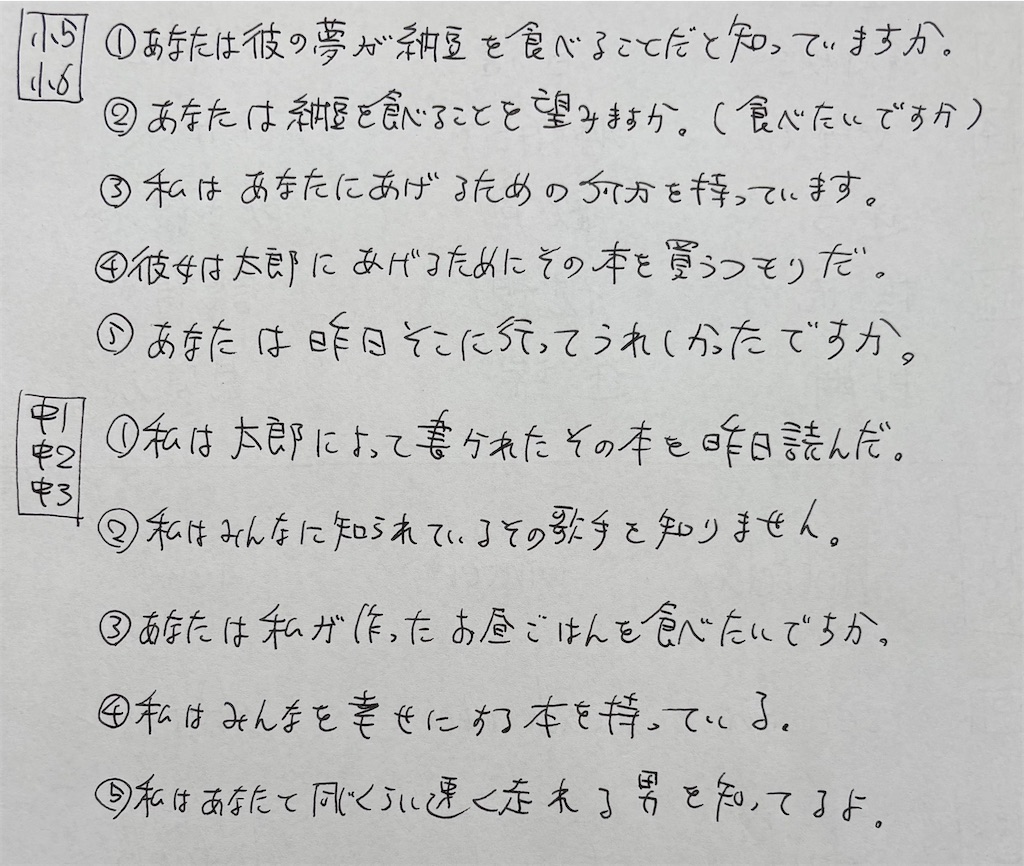 小5
小6
①あなたは彼の夢が納豆を食べることだと知っていますか。
②あなたは納豆を食べることを望みますか。(食べたいですか)
③私はあなたにあげるための何かを持っています。
④彼女は太郎にあげるためにその本を買うつもりだ。
⑤あなたは昨日そこに行ってうれしかったですか。
中1
中2
中3
①私は太郎によって書かれたその本を昨日読んだ。
②私はみんなに知られているその歌手を知りません。
③あなたは私が作ったお昼ごはんを食べたいですか。
④私はみんなを幸せにする本を持っている。
⑤私はあなたと同じくらい速く走れる男を知ってるよ。